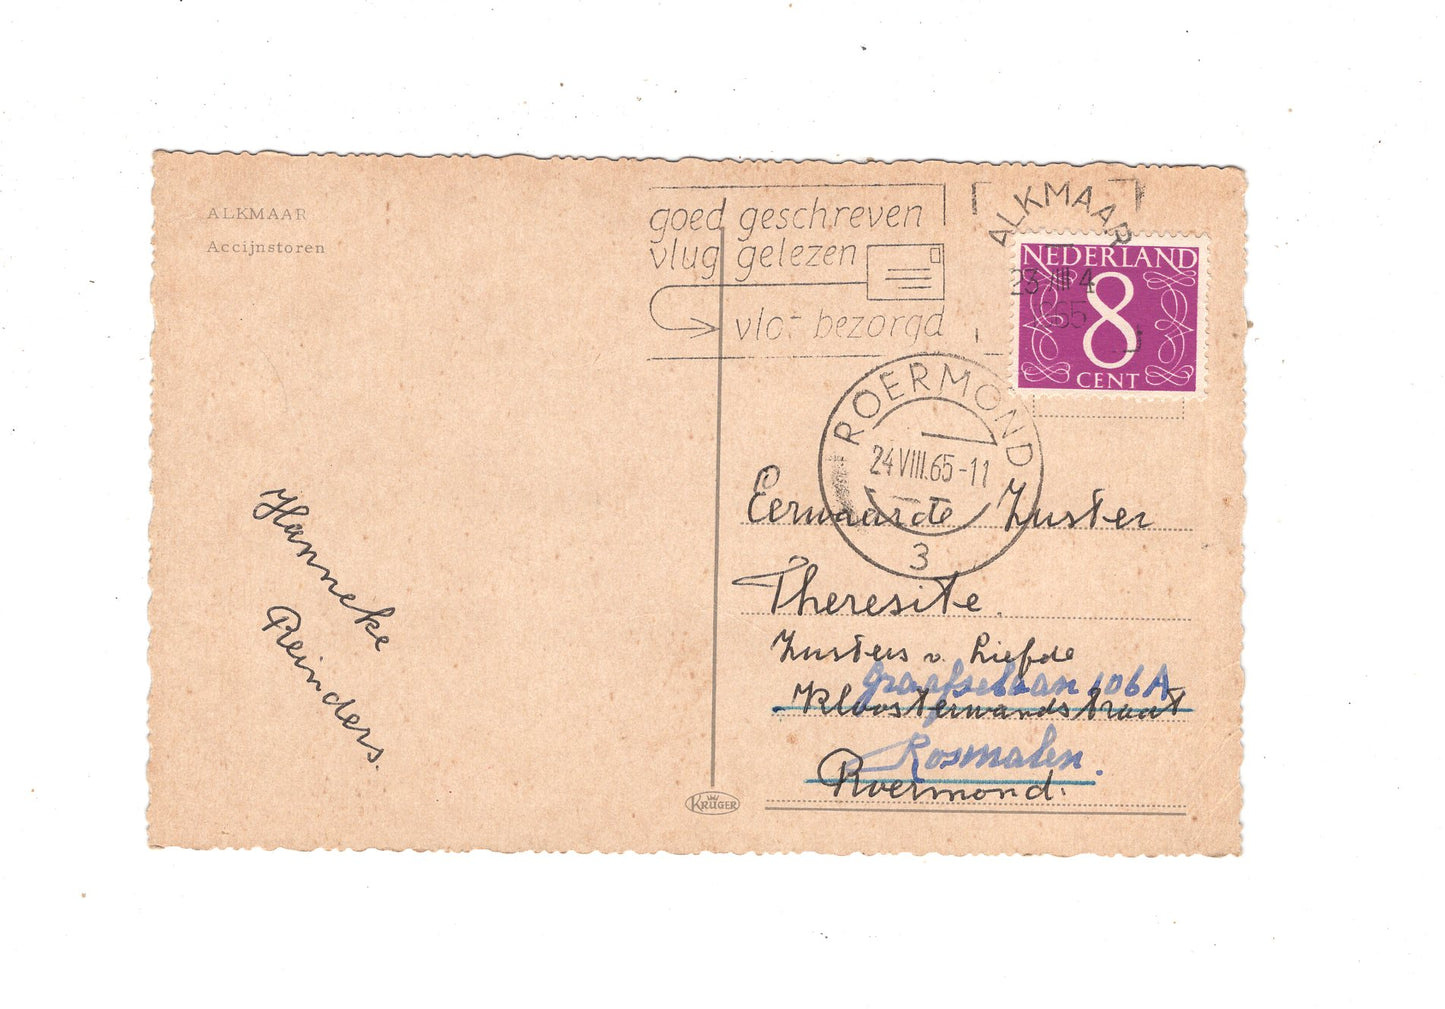 ALKMAAR
Accijnstoren
goed geschreven
vlug gelezen
vlot bezorgd
ALKMAAR
23 VIII 4
1965
NEDERLAND
8
CENT
ROERMOND
24 VIII.65-11
3
Eerwaarde Zuster
Theresite.
Zusters v. Liefde
Graafsebaan 106A
Kloosterwandstraat
Rosmalen.
Roermond.
Hanneke
Reinders.
KRÜGER